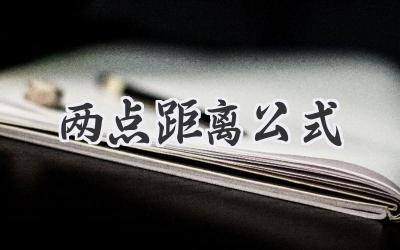 两点距离公式